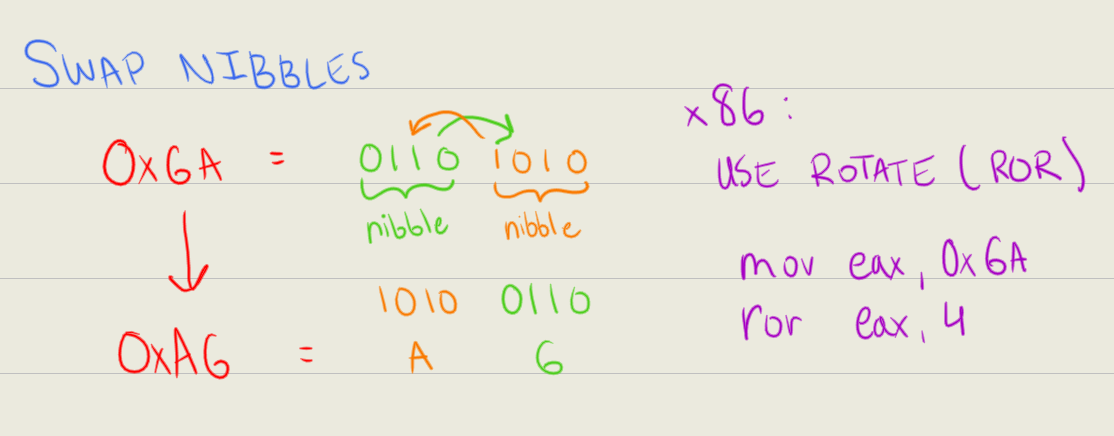 SWAP NIBBLES
0x6A = 0110 1010
nibble nibble
1010 0110
0xA6 = A 6
x86:
USE ROTATE (ROR)
mov eax, 0x6A
ror eax, 4